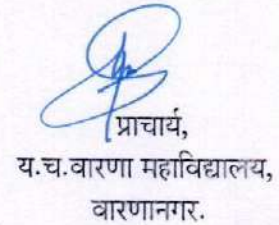 प्राचार्य,
य.च.वारणा महाविद्यालय,
वारणानगर.